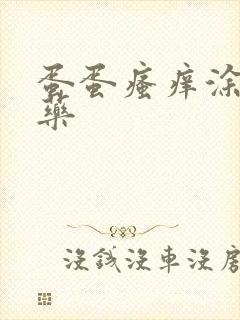 蛋蛋瘙痒涂
药
没钱没車没房